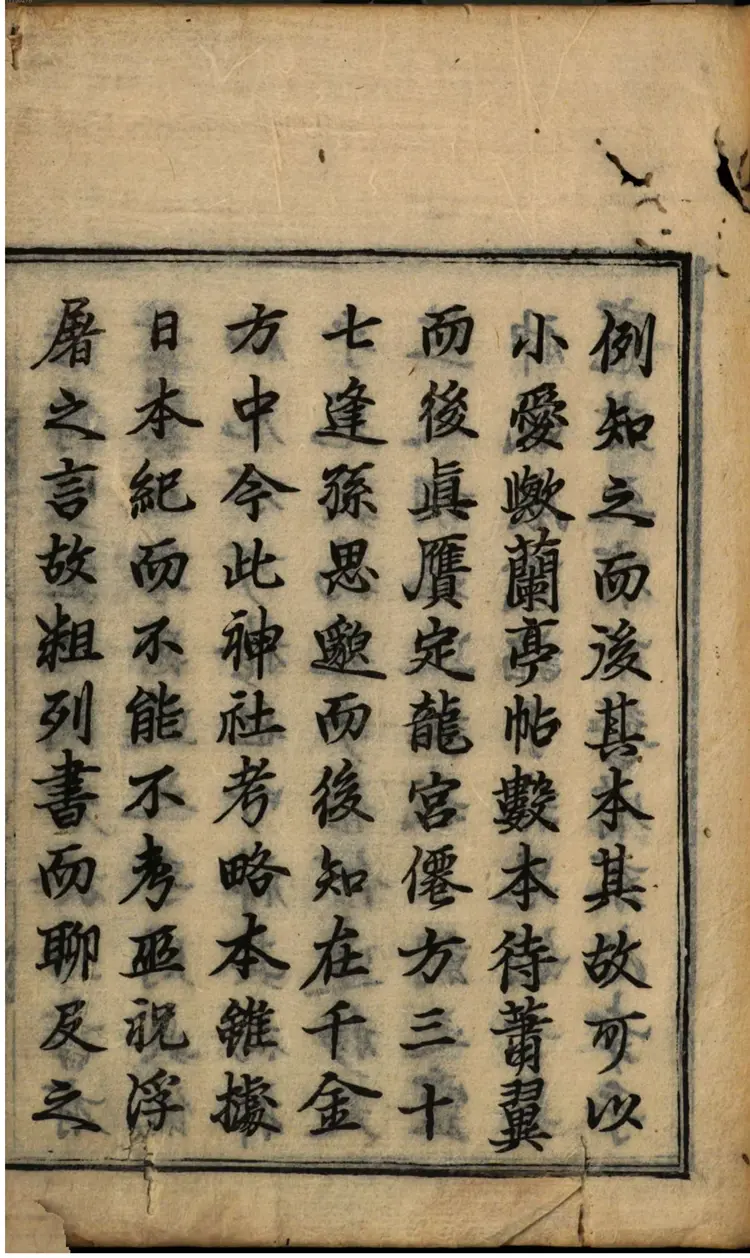 例知之而後其本其故可以
小愛歟蘭亭帖數本待蕭翼
而後眞贋定龍宮僊方三十
七逢孫思邈而後知在千金
方中今此神社考略本雖據
日本紀而不能不考巫祝浮
屠之言故粗列書而聊及之